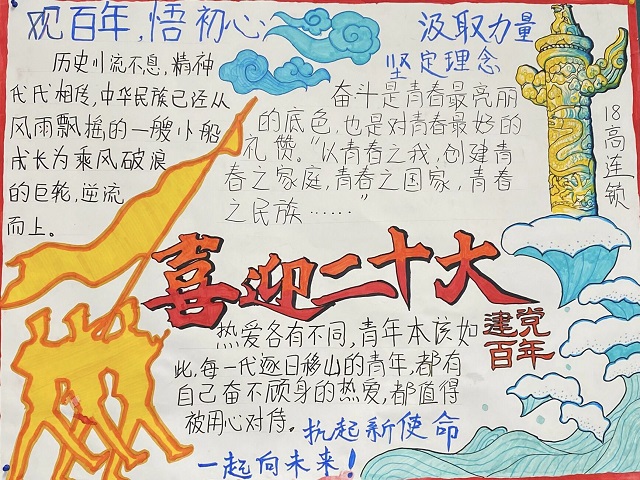 观百年,悟初心:
历史川流不息,精神
代代相传,中华民族已经从
风雨飘摇的一艘小船
成长为乘风破浪
的巨轮,逆流
而上。
汲取力量
坚定理念
奋斗是青春最亮丽
的底色,也是对青春最好的
礼赞。“以青春之我,创建青
春之家庭,青春之国家,青春
之民族……”
18高连锁
喜迎二十大
建党
百年
热爱各有不同,青年本该如
此,每一代逐日移山的青年,都有
自己奋不顾身的热爱,都值得
被用心对待。
扛起新使命
一起向未来!